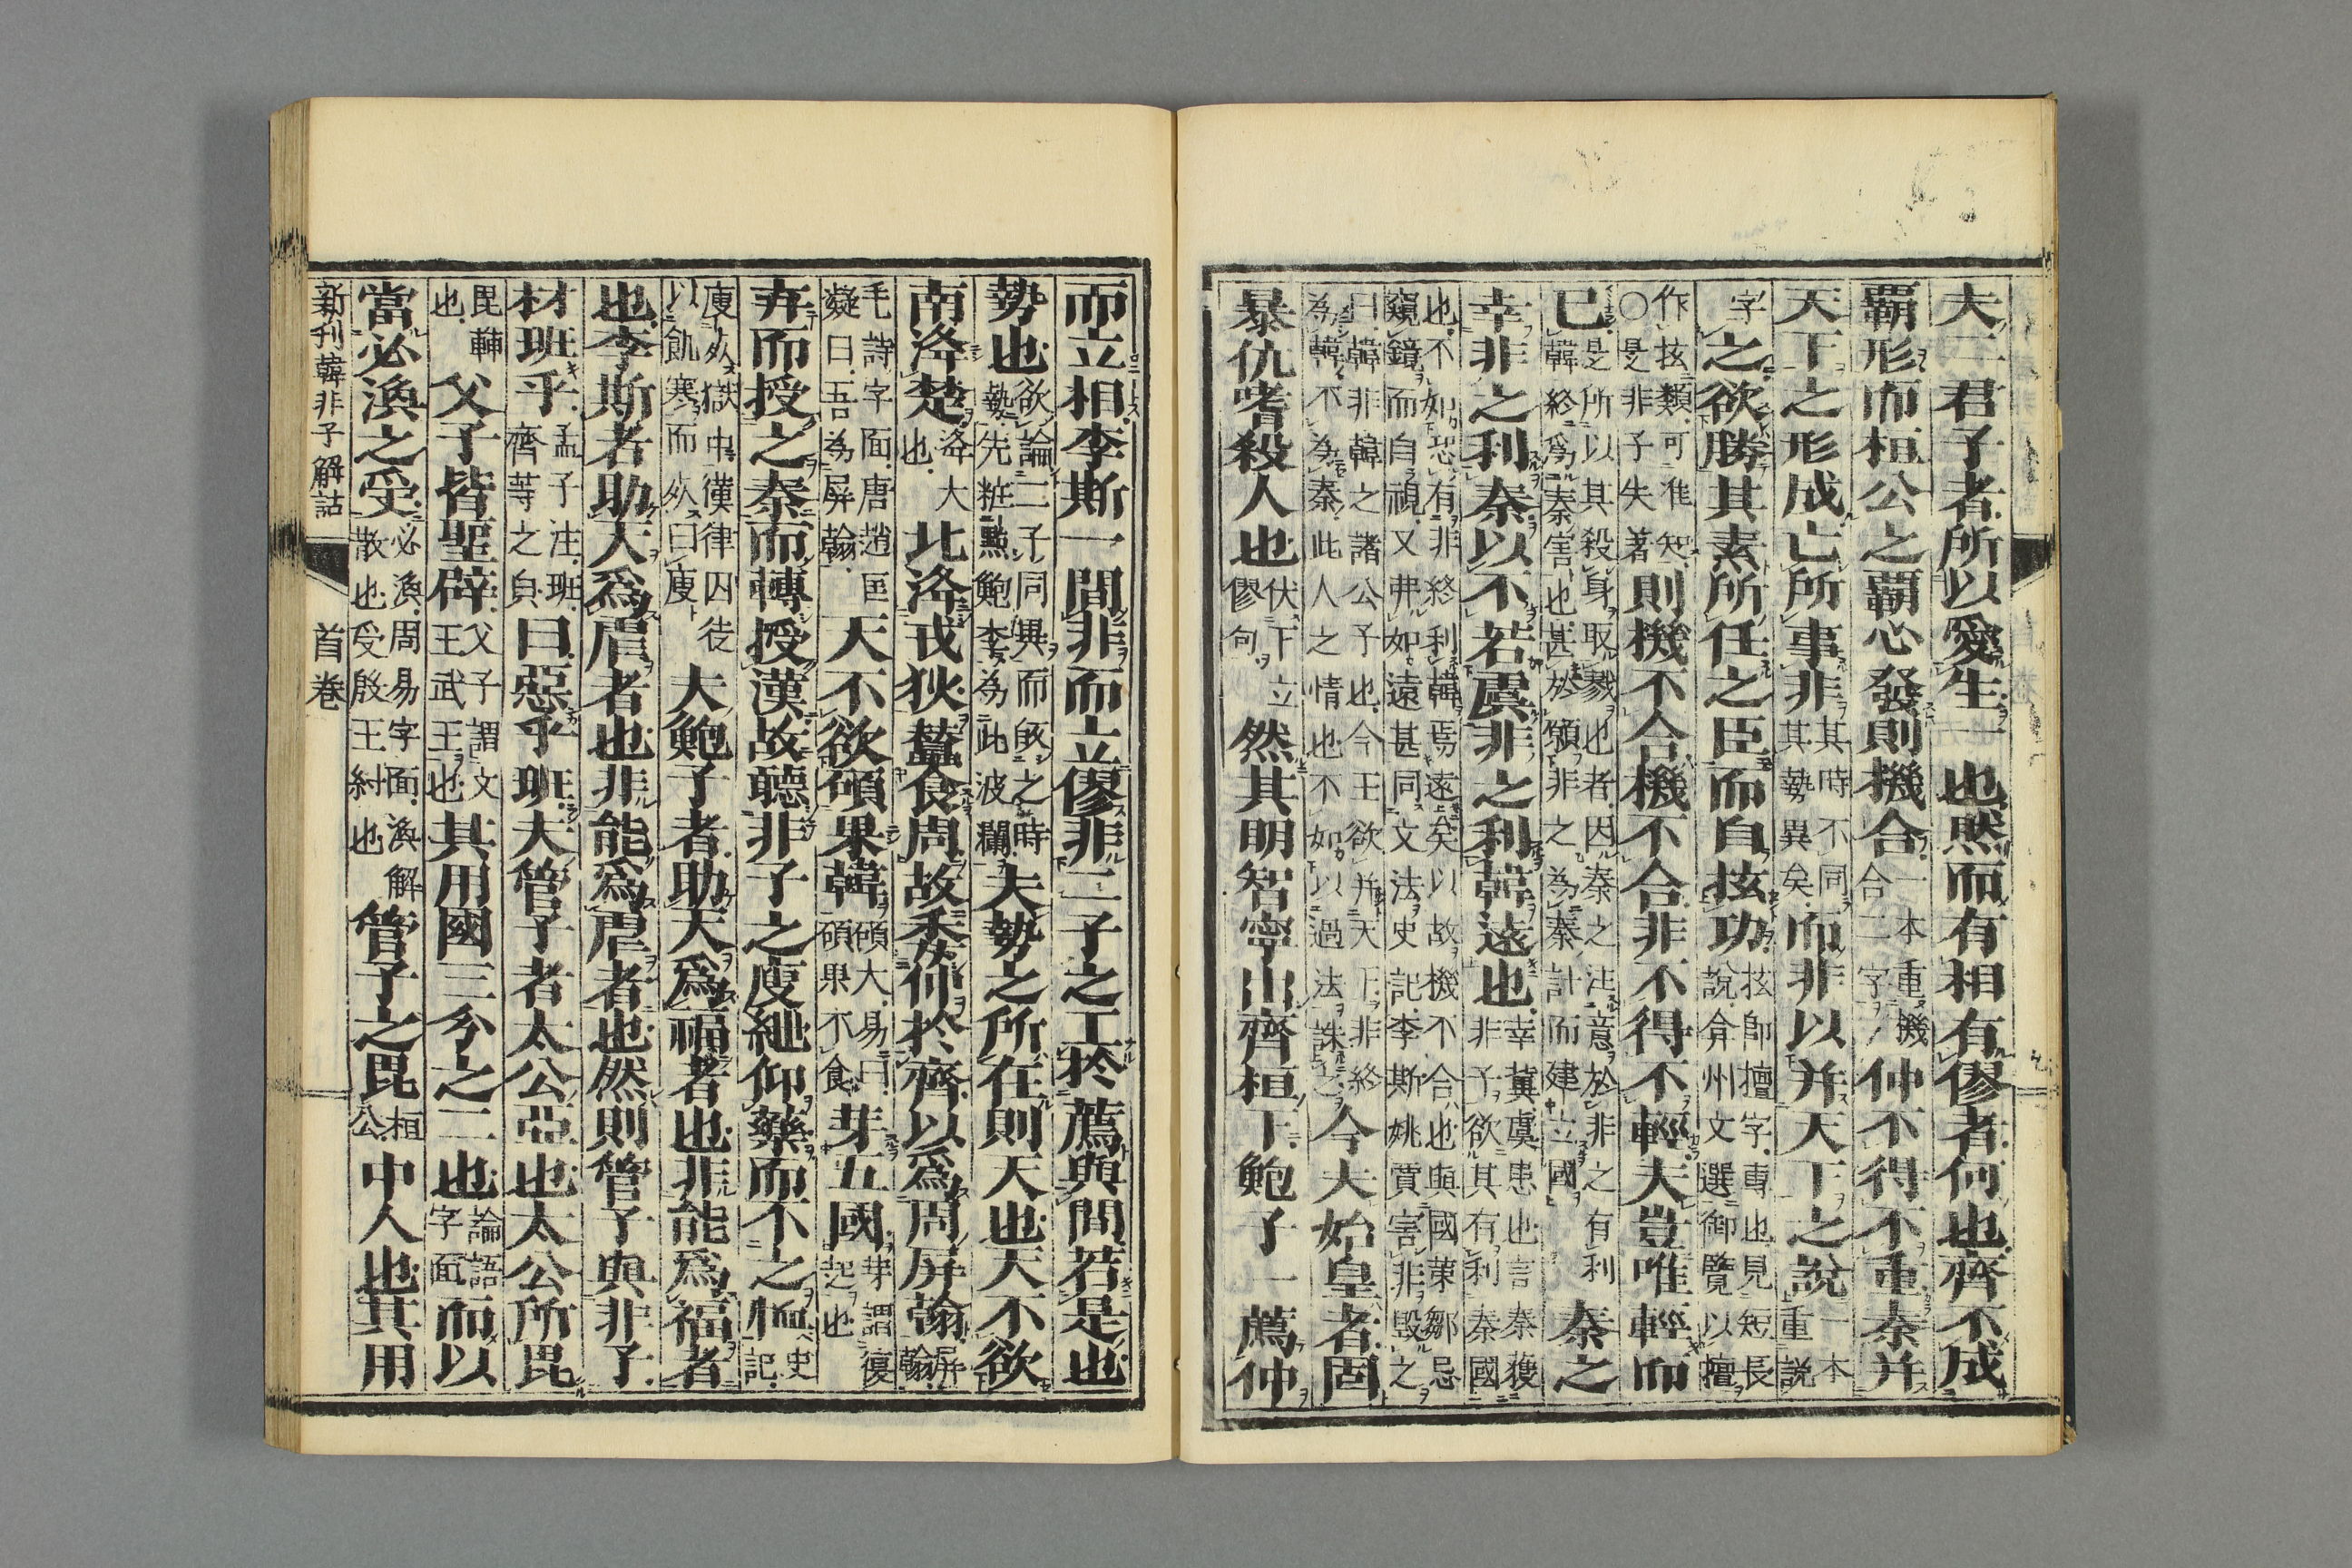 夫二君子者所以愛生一也然而有相有僇者何也齊不成
覇形而桓公之覇心發則機合一本重機合二字仲不得不重秦并
天下之形成亡所事非其時不同其勢異矣而非以并天下之說一本重説
字之欲勝其素所任之臣而自抜功抜即擅字專也見短長說弇州文選仰覽以擅
作抜類可准知〇是非子失著則機不合機不合非不得不輕夫豈唯輕而
已是所以其殺身取戮也者因秦之注意於非之有利韓終爲秦害也甚於頒非之為秦計而建立國秦之
幸非之利秦以不若虞非之利韓遠也幸冀虞患也言秦獲非子欲其有利秦國
也不如恐有非終利韓焉遠矣以故機不合也與國策鄒忌窺鏡而自視又弗如遠甚同文法史記李斯姚賈害非毀之
曰韓非韓之諸公子也今王欲并天下非終為韓不為秦此人之情也不如以過法誅之今夫始皇者固
暴仇嗜殺人也伏下立僇句然其明智寧出齊桓下鮑子一薦仲
而立相李斯一間非而立僇非二子之工於薦與間若是也
勢也欲論二子同異而餙之時勢先粧點鮑李為此波瀾夫勢之所在則天也天不欲
南洚楚洚大也北洚戎狄蠶食周故秂仲於齊以爲周屏翰屏翰
毛詩字面唐趙匡凝曰吾為屏翰天不欲碩果韓碩大易曰碩果不食芽五國芽謂復起也
弃而授之秦而轉授漢故聽非子之廋紲仰藥而不之恤史記
廋死獄中漢律囚徒以飢寒而死曰廋夫鮑子者助天爲福者也非能爲福者
也李斯者助天爲虐者也非能爲虐者也然則管子與非子
材班乎孟子注班齊等之貟曰惡乎班夫管子者太公亞也太公所毘
毘輔也父子皆聖辟父子謂文王武王王也其用國三分之二也論語字面而以
當必渙之受必渙周易字面渙解散也受殷王紂也管子之毘桓公中人也其用
新刊韓非子解詁 首卷